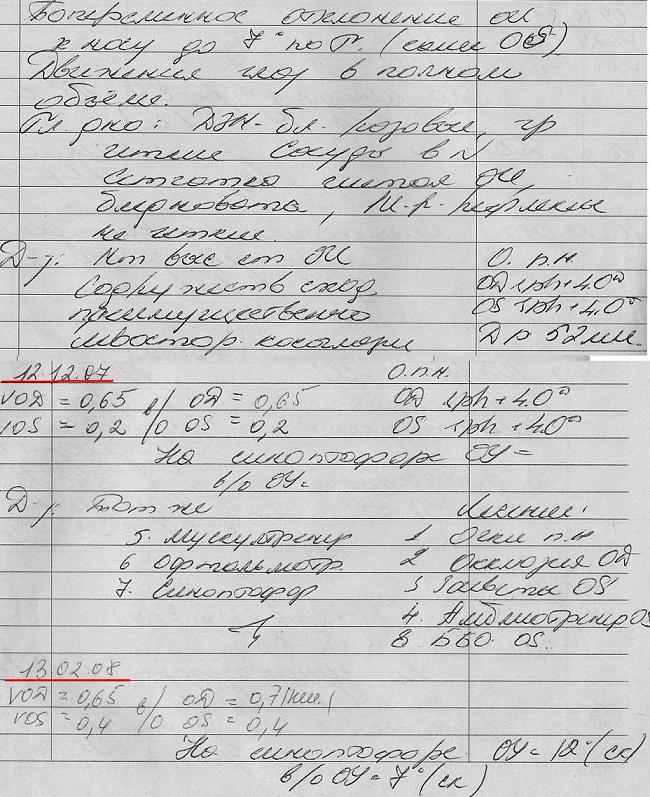 Попеременное отклонение OU
к носу до 7° по Г. (чаще OS)
Движения глаз в полном
объёме.
Гл. дно: ДЗН - бл. розовые, гр
четкие Сосуды в N
Сетчатка чистая OU,
бледновата, М-р. рефлексы
не четкие.
Д-з: Hm выс ст OU О. п.н.
Содружеств сход. OD sph + 4.0D
преимущественно OS sph + 4.0D
косоглазие Dp 52мм.
12.12.07 О.п.н.
VOD = 0,65 в/о OD = 0,65 OD sph + 4.0D
VOS = 0,2 в/о OS = 0,2 OS sph + 4.0D
На синоптофоре ОУ =
в/о ОУ=
Д-з: Тот же Лечение:
5. Мускултренир 1 Очки п.н
6 Офтальмотр. 2 Окклюзия OD
7. Синоптофор 3 Засветы OS
4. Амблиотренир OS
8 ББО OS.
13.02.08
VOD = 0,65 в/о OD = 0,7
VOS = 0,4 в/о OS = 0,4
На синоптофоре ОУ = 12° (ск)
в/о ОУ = 7° (ск)